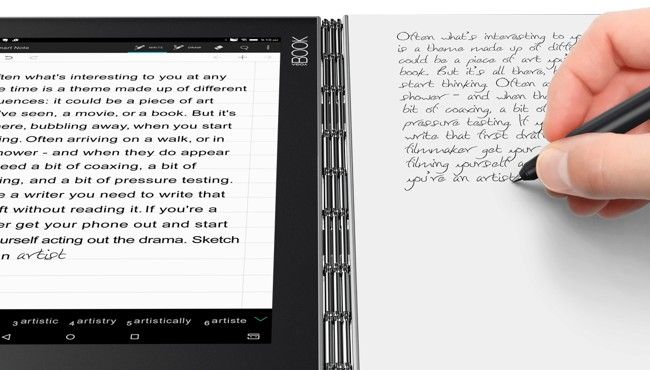 9:10
Smart Note
WRITE
DRAW
BOOK
ten what's interesting to you at any
e time is a theme made up of different
uences: it could be a piece of art
've seen, a movie, or a book. But it's
ere, bubbling away, when you start
ing. Often arriving on a walk, or in
hower - and when they do appear
eed a bit of coaxing, a bit of
ing, and a bit of pressure testing.
e a writer you need to write that
ft without reading it. If you're a
er get your phone out and start
urself acting out the drama. Sketch
n artist
3 artistic 4 artistry 5 artistically 6 artiste
Often what's interesting to you
is a theme made up of diffe
could be a piece of art yo
book. But it's all there, b
start thinking. Often a
shower - and when th
bit of coaxing, a bit o
pressure testing. If y
write that first dra
filmmaker get your
filming yourself a
you're an artist